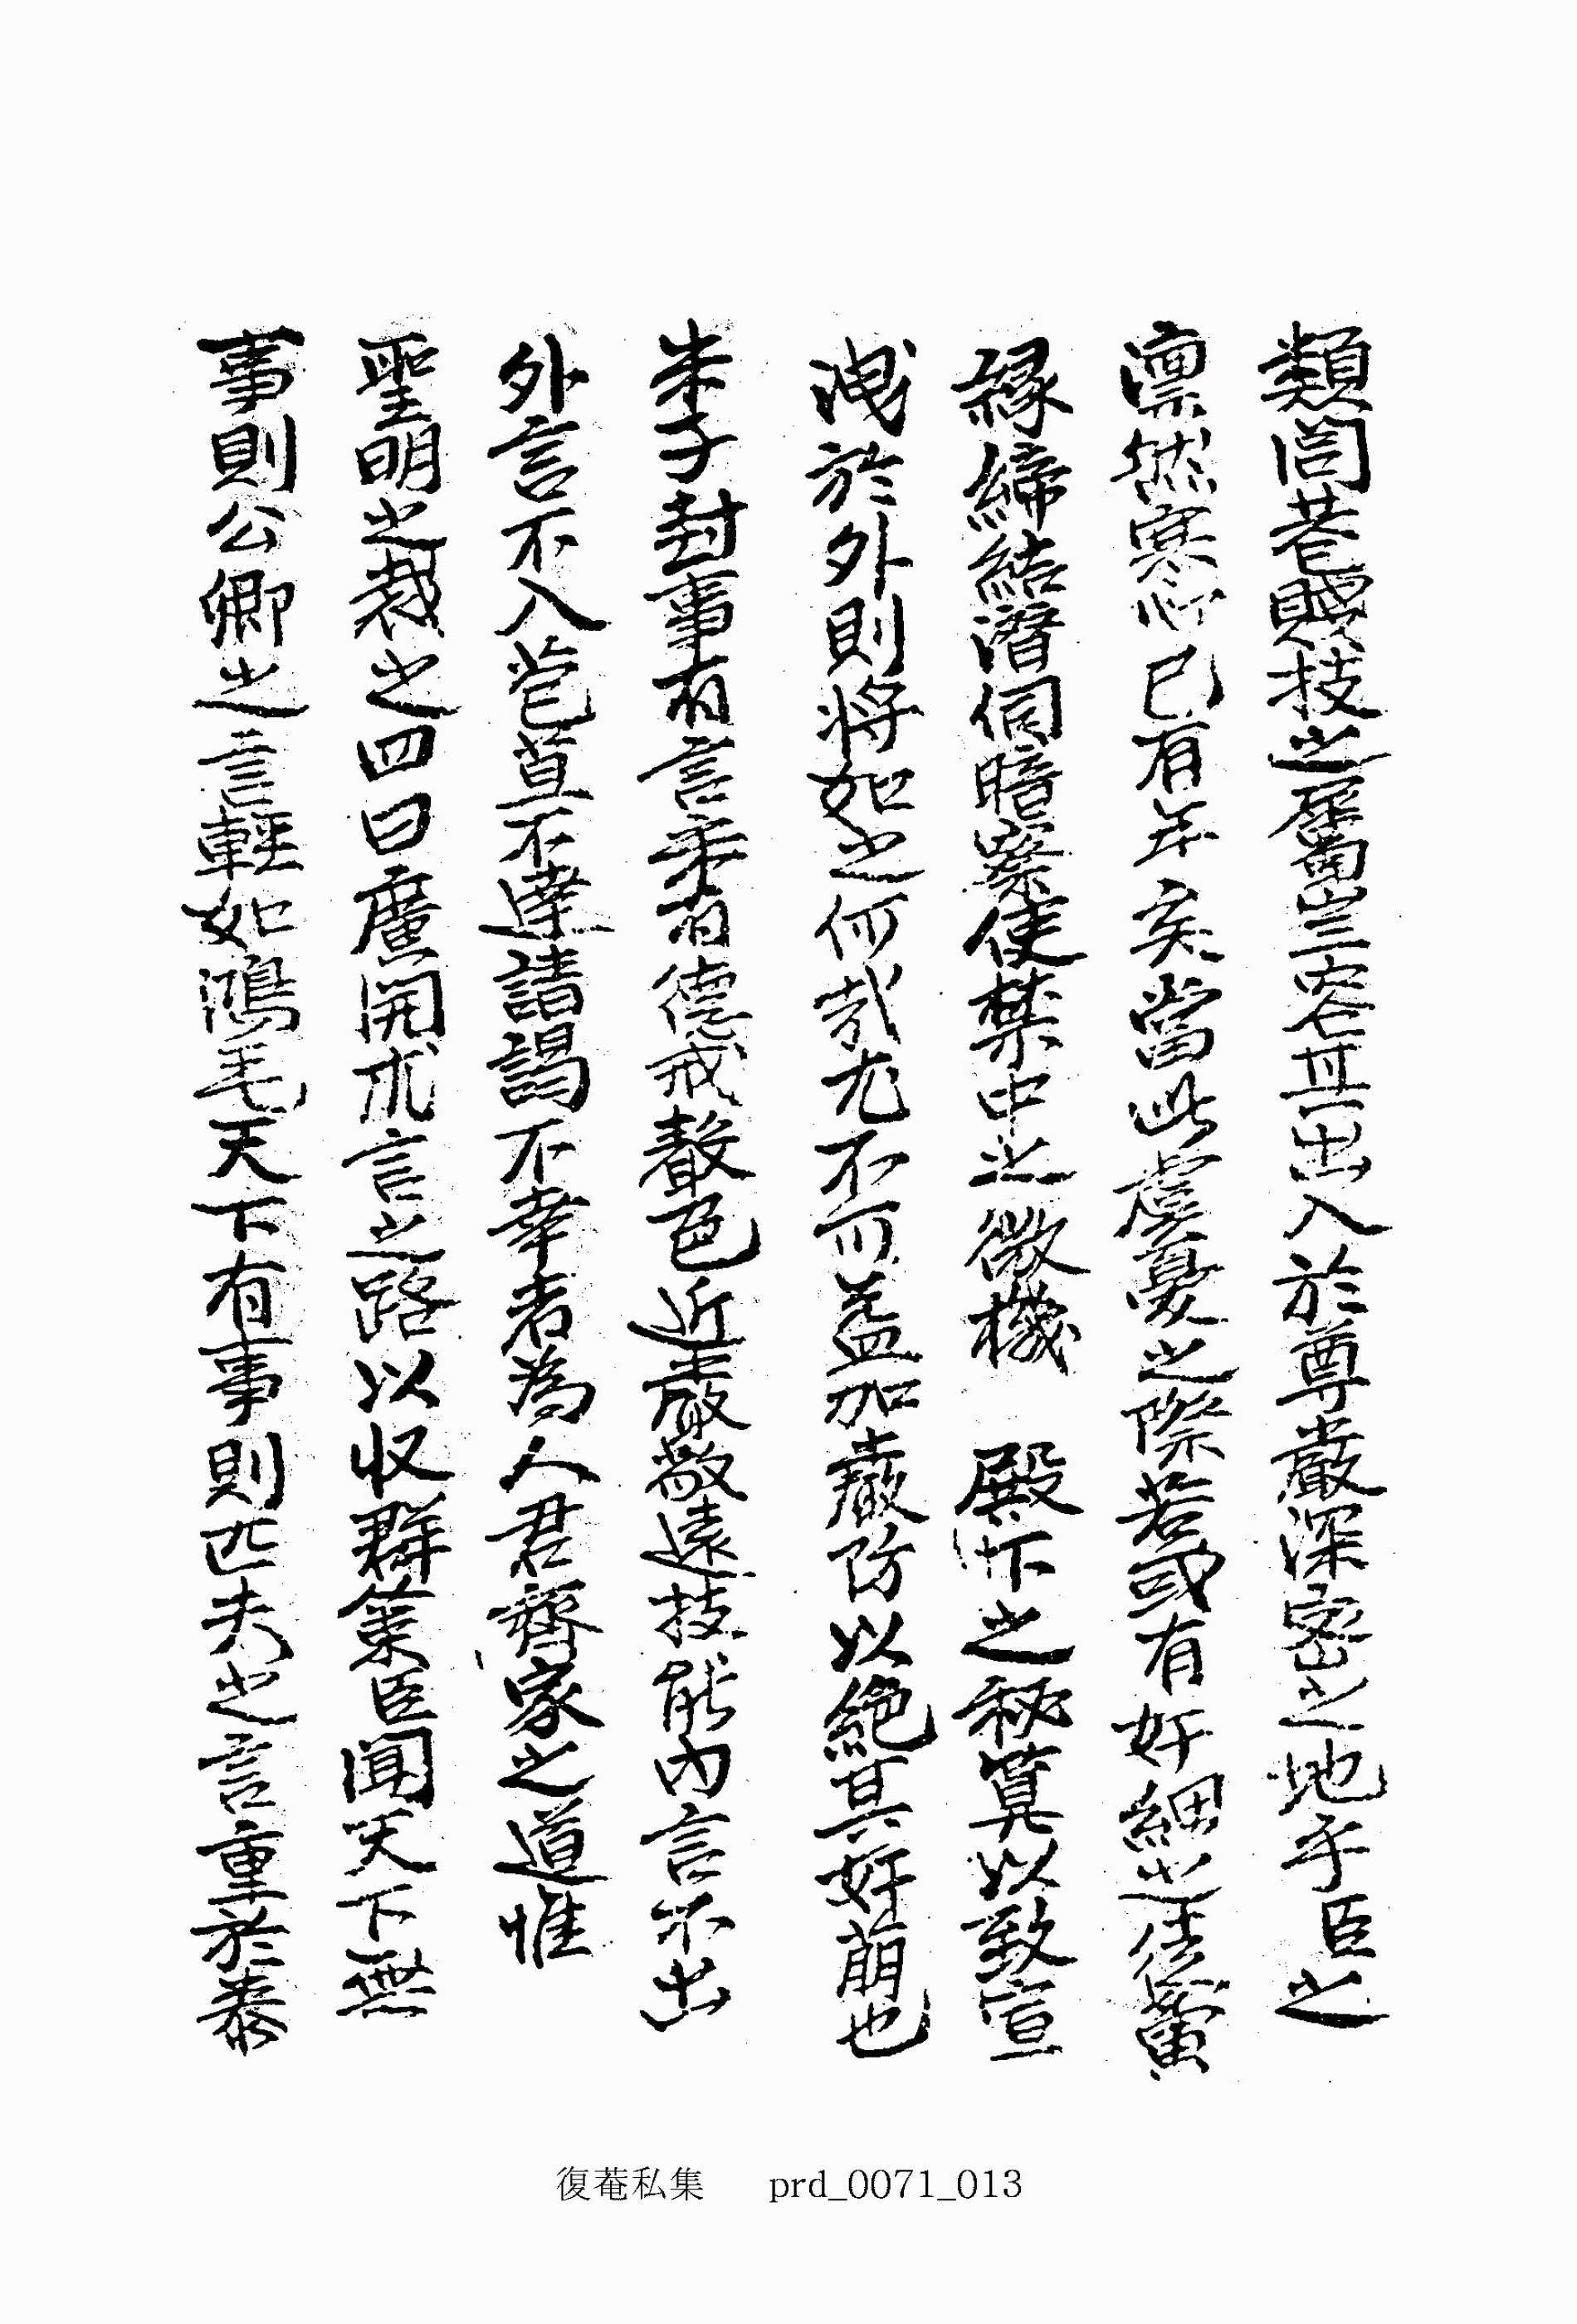 類閭巷賤技之屬豈容其出入於尊嚴深密之地乎臣之
凛然寒心已有年矣當此虞憂之際若或有奸細之徒黨
縁締結潜伺暗察使禁中之微機 殿下之秘算以致宣
洩於外則將如之何哉尤不可益加嚴防以絶其奸萠也
朱子封事有言來有德戒聲色近嚴敬遠技能内言不出
外言不入苞苴不達請謁不幸者為人君齊家之道惟
聖明之裁之四曰廣開求言之路以収群策臣聞天下無
事則公卿之言輕如鴻毛天下有事則匹夫之言重於泰
復菴私集 prd_0071_013